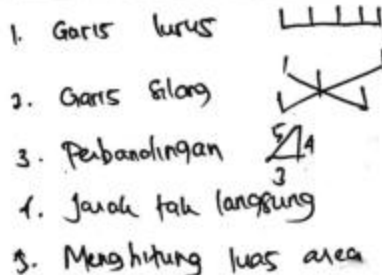 1. Garis lurus
2. Garis silang
3. Perbandingan 5 4 3
4. Jarak tak langsung
5. Menghitung luas area